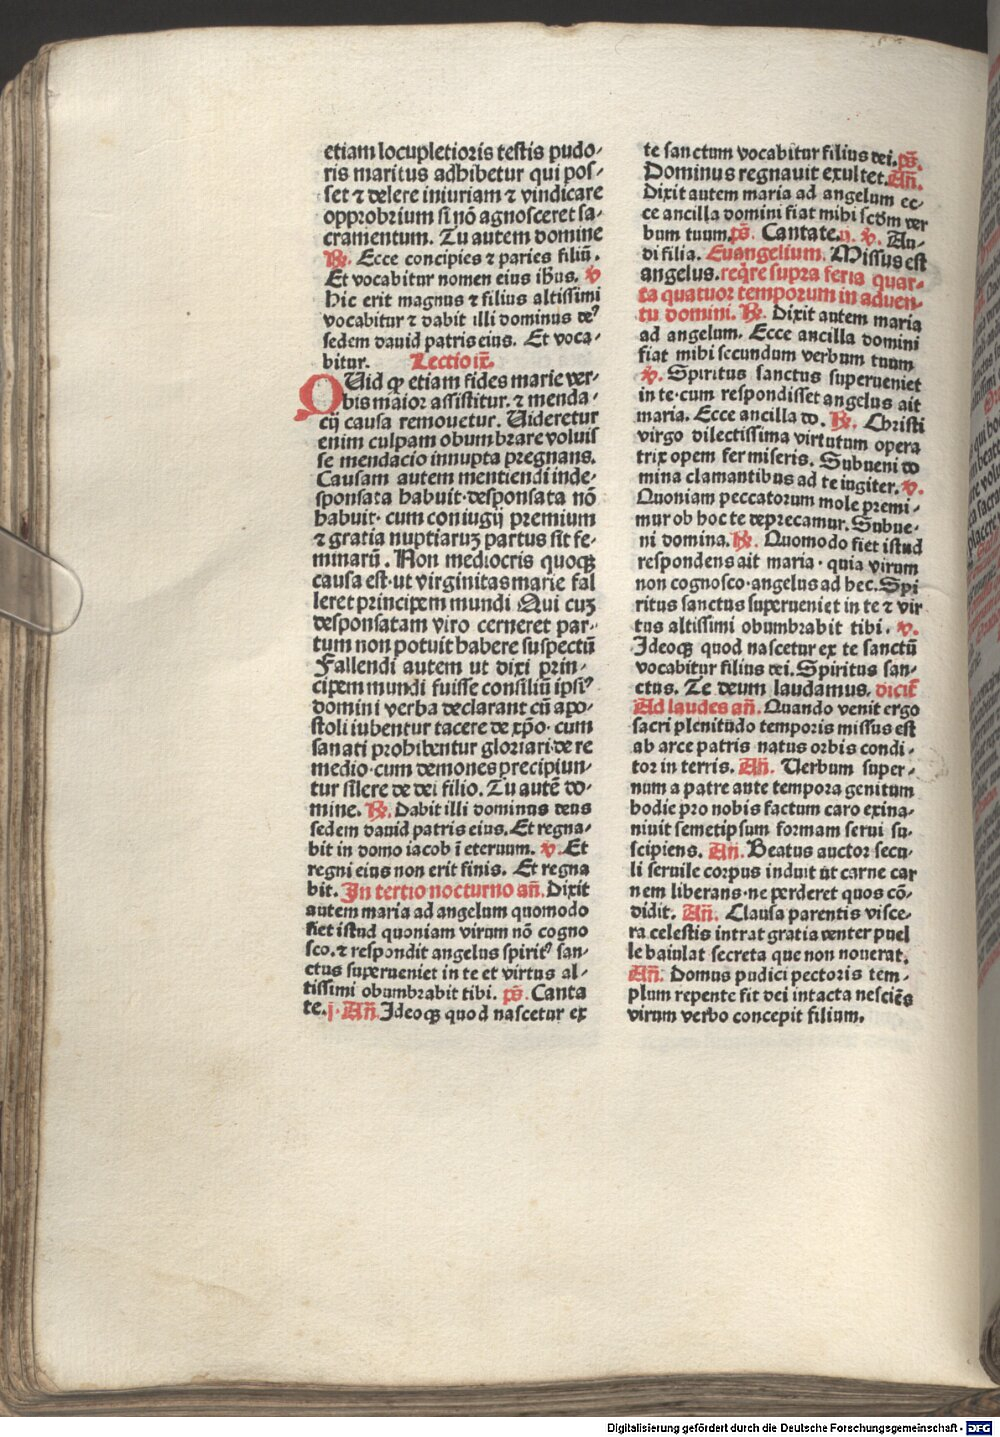 etiam locupletioris testis pudo⸗
ris maritus adhibetur qui pos⸗
set ⁊ delere iniuriam ⁊ vindicare
opprobrium si nō agnosceret sa⸗
cramentum. Tu autem domine
℟. Ecce concipies ⁊ paries filiū.
Et vocabitur nomen eius ihūs. ℣
hic erit magnus ⁊ filius altissimi
vocabitur ⁊ dabit illi dominus deꝰ
sedem dauid patris eius. Et voca⸗
bitur. Lectio ix.
QUid ꝙ etiam fides marie ver⸗
bis maior assistitur. ⁊ menda⸗
cij causa remouetur. Uideretur
enim culpam obumbrare voluis
se mendacio innupta pregnans.
Causam autem mentiendi inde⸗
sponsata habuit· desponsata nō
habuit· cum coniugij premium
⁊ gratia nuptiaruꝫ partus sit fe⸗
minarū. Non mediocris quoqꝫ
causa est· ut virginitas marie fal
leret principem mundi Qui cuꝫ
desponsatam viro cerneret par⸗
tum non potuit habere suspectū
Fallendi autem ut dixi prin⸗
cipem mundi fuisse consiliū ipsiꝰ
domini verba declarant cū apo⸗
stoli iubentur tacere de xp̄o· cum
sanati prohibentur gloriari· de re
medio· cum demones precipiun⸗
tur silere de dei filio. Tu autē do⸗
mine. ℟. Dabit illi dominus deus
sedem dauid patris eius. Et regna⸗
bit in domo iacob ī eternum. ℣. Et
regni eius non erit finis. Et regna
bit. In tertio nocturno añ. Dixit
autem maria ad angelum quomodo
fiet istud quoniam virum nō cogno
sco. ⁊ respondit angelus spiritꝰ san⸗
ctus superueniet in te et virtus al⸗
tissimi obumbrabit tibi. ps̄. Canta
te. j· Añ. Ideoqꝫ quod nascetur ex
te sanctum vocabitur filius dei. ps̄.
Dominus regnauit exultet. Añ.
Dixit autem maria ad angelum ec⸗
ce ancilla domini fiat mihi scdm ver
bum tuum. ps̄. Cantate. ij. ℣. Au⸗
di filia. Euangelium. Missus est
angelus. reqre supra feria quar⸗
ta quatuor temporum in aduen⸗
tu domini. ℟. Dixit autem maria
ad angelum. Ecce ancilla domini
fiat mihi secundum verbum tuum
℣. Spiritus sanctus superueniet
in te· cum respondisset angelus ait
maria. Ecce ancilla do. ℟. Christi
virgo dilectissima virtutum opera
trix opem fer miseris. Subueni do
mina clamantibus ad te iugiter. ℣.
Quoniam peccatorum mole premi⸗
mur ob hoc te deprecamur. Subue⸗
ni domina. ℟. Quomodo fiet istud
respondens ait maria· quia virum
non cognosco· angelus ad hec. Spi
ritus sanctus superueniet in te ⁊ vir
tus altissimi obumbrabit tibi. ℣.
Ideoqꝫ quod nascetur ex te sanctū
vocabitur filius dei. Spiritus san⸗
ctus. Te deum laudamus. dicit̄
Ad laudes añ. Quando venit ergo
sacri plenitudo temporis missus est
ab arce patris natus orbis condi⸗
tor in terris. Añ. Verbum super⸗
num a patre ante tempora genitum
hodie pro nobis factum caro exina⸗
niuit semetipsum formam serui su⸗
scipiens. Añ. Beatus auctor secu⸗
li seruile corpus induit ut carne car
nem liberans· ne perderet quos cō⸗
didit. Añ. Clausa parentis visce⸗
ra celestis intrat gratia venter puel
le baiulat secreta que non nouerat.
Añ. Domus pudici pectoris tem⸗
plum repente fit dei intacta nesciēs
virum verbo concepit filium.
Digitalisierung gefördert durch die Deutsche Forschungsgemeinschaft - DFG